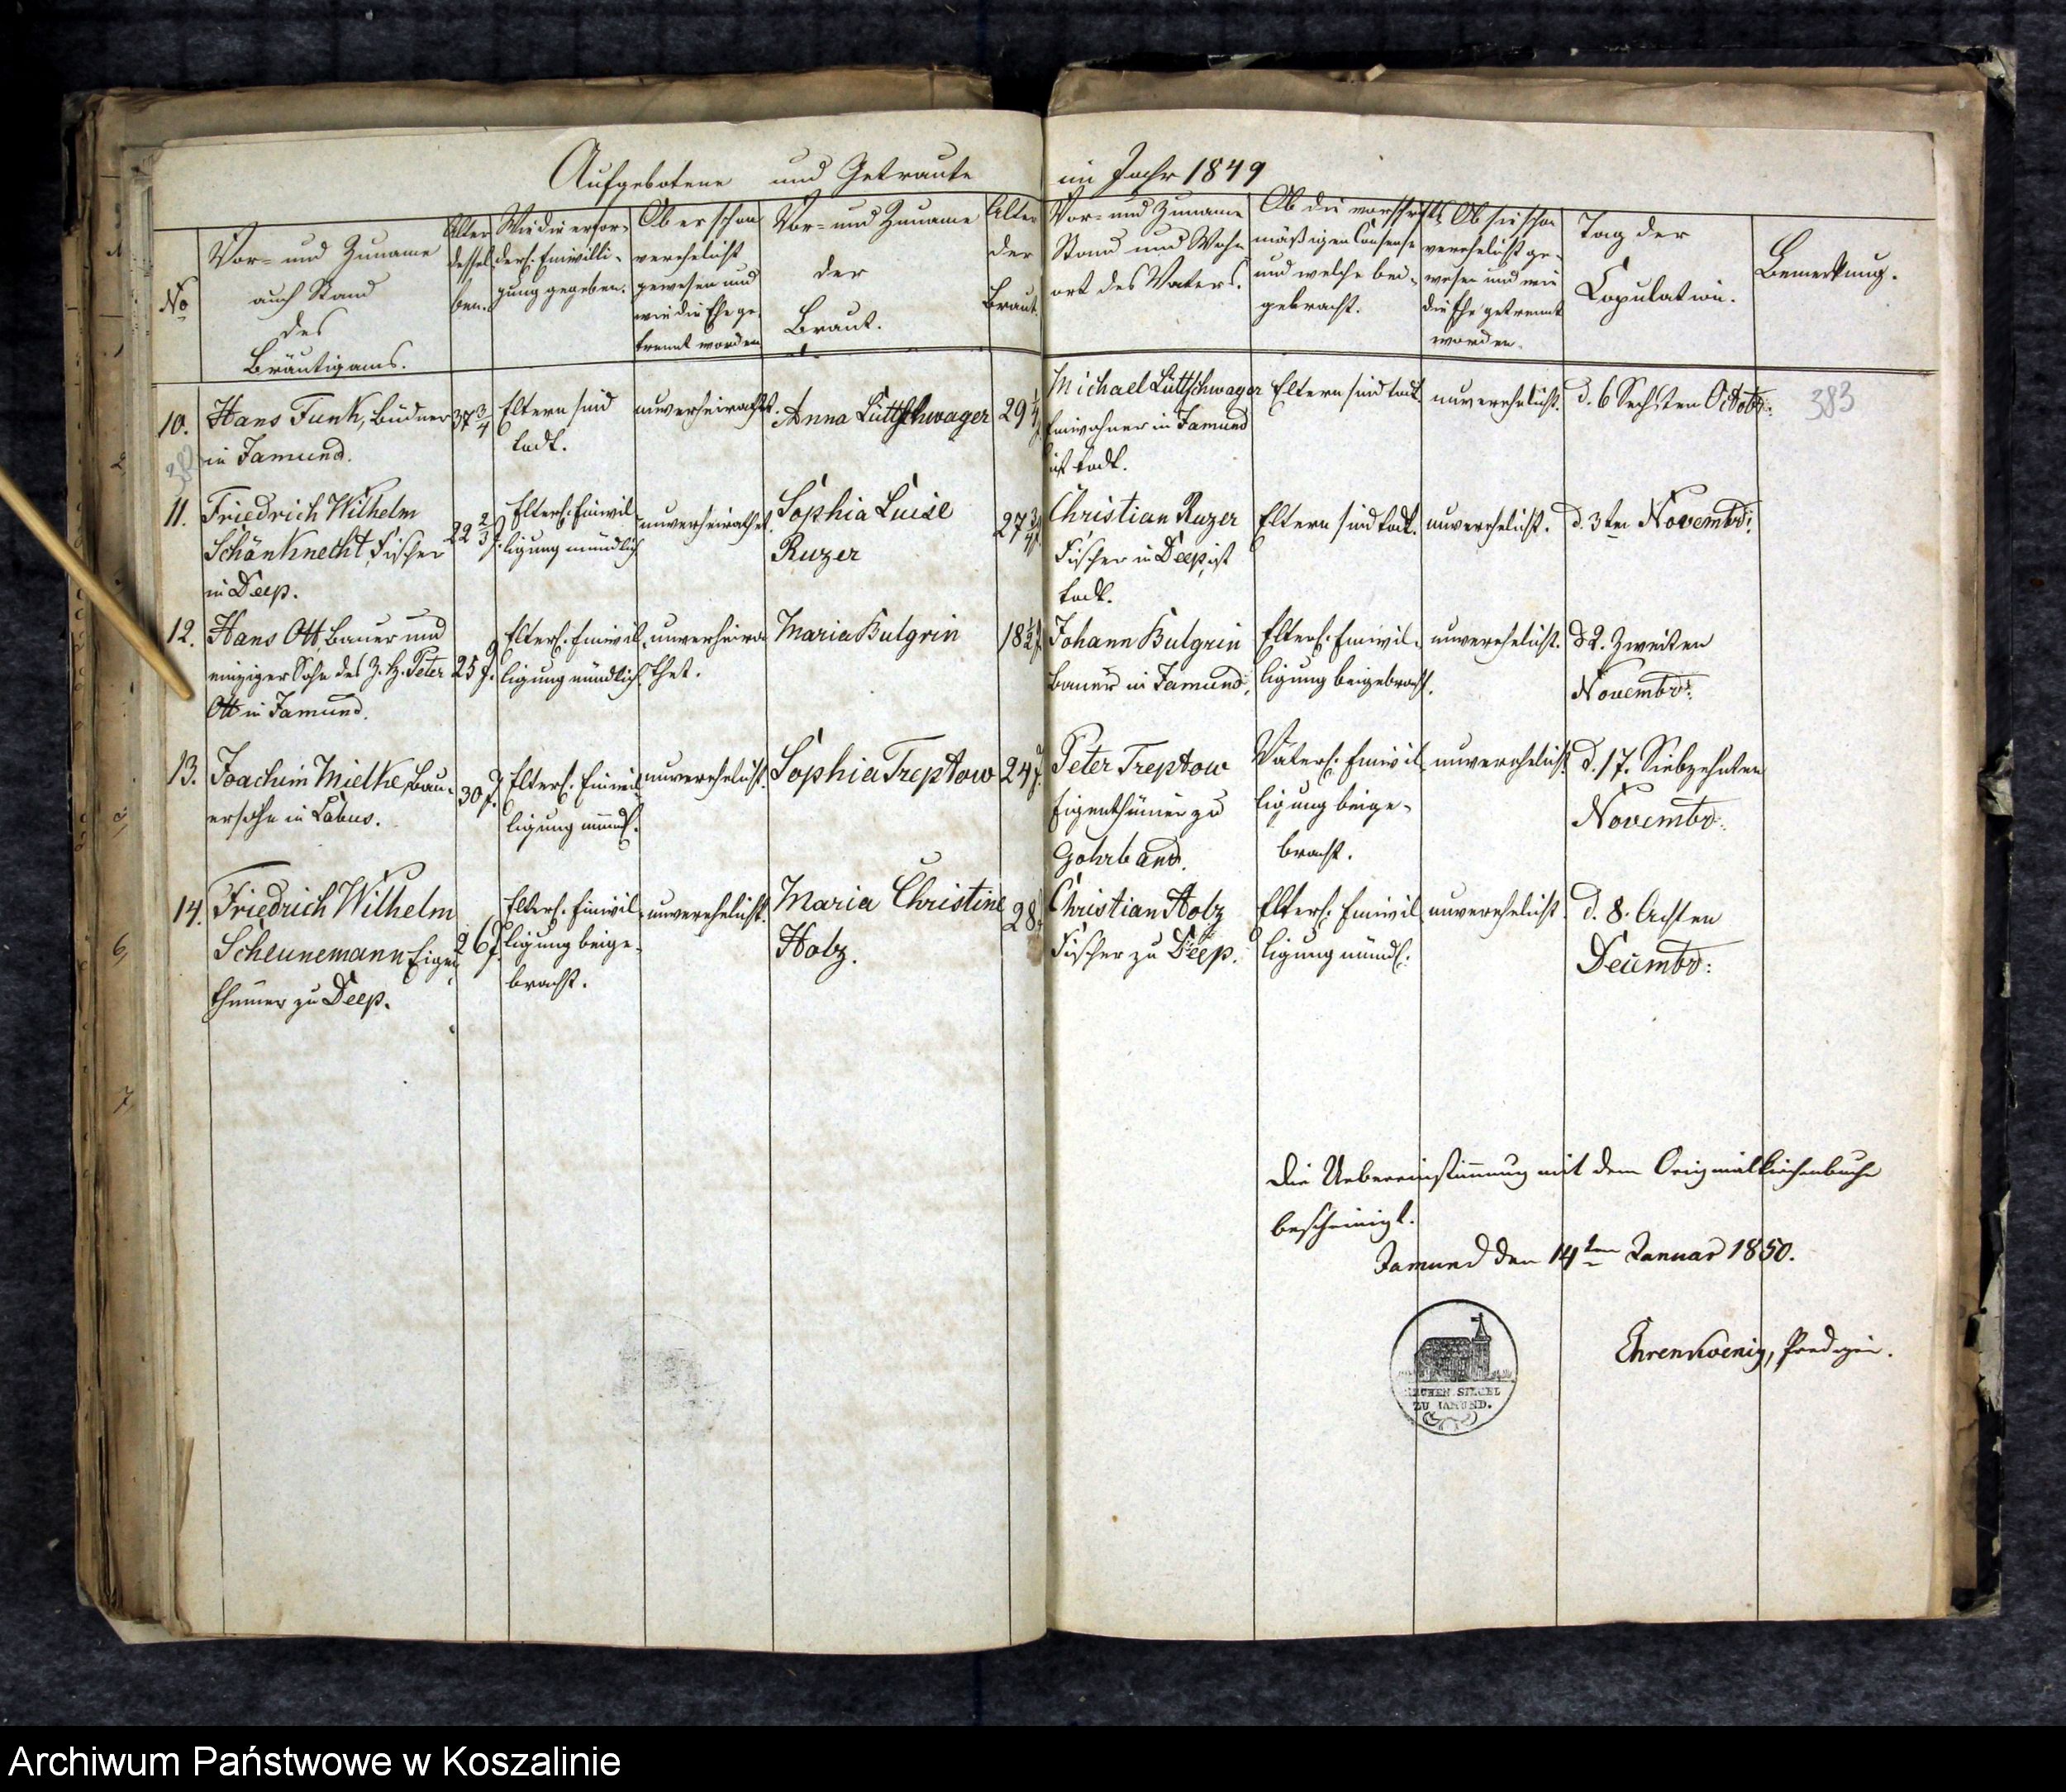 Aufgebotene und Getraute im Jahr 1849
No
Vor- und Zuname
auch Stand
des
Bräutigams.
Alter
dessel-
ben.
Wie die erfor-
derl. Einwilli-
gung gegeben.
Ob er schon
verehelicht
gewesen und
wie die Ehe ge-
trennt worden
Vor- und Zuname
der
Braut.
Alter
der
Braut.
Vor- und Zuname
Stand und Wohn-
ort des Vaters.
Ob die vorschrifts-
mäßigen Consense
und welche bei-
gebracht.
Ob sie schon
verehelicht ge-
wesen und wie
die Ehe getrennt
worden.
Tag der
Copulation.
Bemerkung.
10.
Hans Funk, Büdner
in Jamund.
37 3/4
Eltern sind
todt.
unverheirathet.
Anna Lüttschwager
29
Michael Lüttschwager
Einwohner in Jamund
ist todt.
Eltern sind todt.
unverehelicht.
d. 6 Sechsten Octobr:
383
11.
Friedrich Wilhelm
Schänknecht, Fischer
in Deep.
22 2/3 J.
Elterl. Einwil-
ligung mündlich
unverheirathet.
Sophia Luise
Ruzer
27 3/4 J.
Christian Ruzer
Fischer in Deep, ist
todt.
Eltern sind todt.
unverehelicht.
d. 3ten Novembr:
12.
Hans Ott, Bauer und
einziger Sohn des Peter
Ott in Jamund.
25 J.
Elterl. Einwil-
ligung mündlich.
unverheira-
thet.
Maria Bulgrin
18 1/2 J.
Johann Bulgrin
Bauer in Jamund,
Elterl. Einwil-
ligung beigebracht.
unverehelicht.
d 2. Zweiten
Novembr:
13.
Joachim Mielke, Bau-
ersohn in Labus.
30 J.
Elterl. Einwil-
ligung mündl.
unverehelicht.
Sophia Treptow
24 J.
Peter Treptow
Eigenthümer zu
Gohrband.
Väterl. Einwil-
ligung beige-
bracht.
unverehelicht
d. 17. Siebzehnten
Novembr:
14.
Friedrich Wilhelm
Scheunemann Eigen-
thümer zu Deep.
26 J.
Elterl. Einwil-
ligung beige-
bracht.
unverehelicht.
Maria Christine
Holz.
28
Christian Holz
Fischer zu Deep.
Elterl. Einwil-
ligung mündl.
unverehelicht
d. 8. Achten
Decembr:
Die Uebereinstimmung mit dem Originalkirchenbuche
bescheinigt.
Jamund den 14ten Januar 1850.
Ehrenkoenig, Prediger.
KIRCHEN SIEGEL
ZU JAMUND.
Archiwum Państwowe w Koszalinie